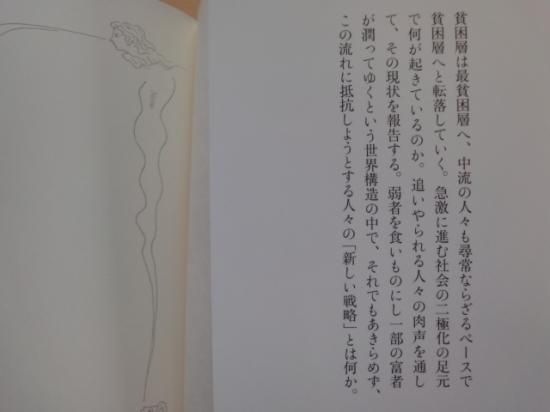 貧困層は最貧困層へ、中流の人々も尋常ならざるペースで
貧困層へと転落していく。急激に進む社会の二極化の足元
で何が起きているのか。追いやられる人々の肉声を通し
て、その現状を報告する。弱者を食いものにし一部の富者
が潤ってゆくという世界構造の中で、それでもあきらめず、
この流れに抵抗しようとする人々の「新しい戦略」とは何か。